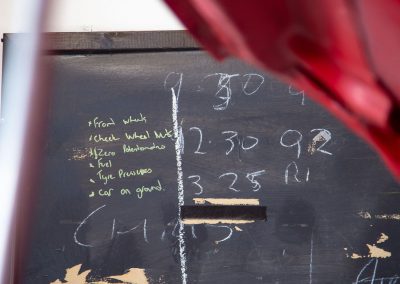 9.30 9
* Front wheels
* Check Wheel Nuts
* Zero Potentiometers
* Fuel
* Tyre Pressures
* Car on ground.
12.30 92
3.25 R1